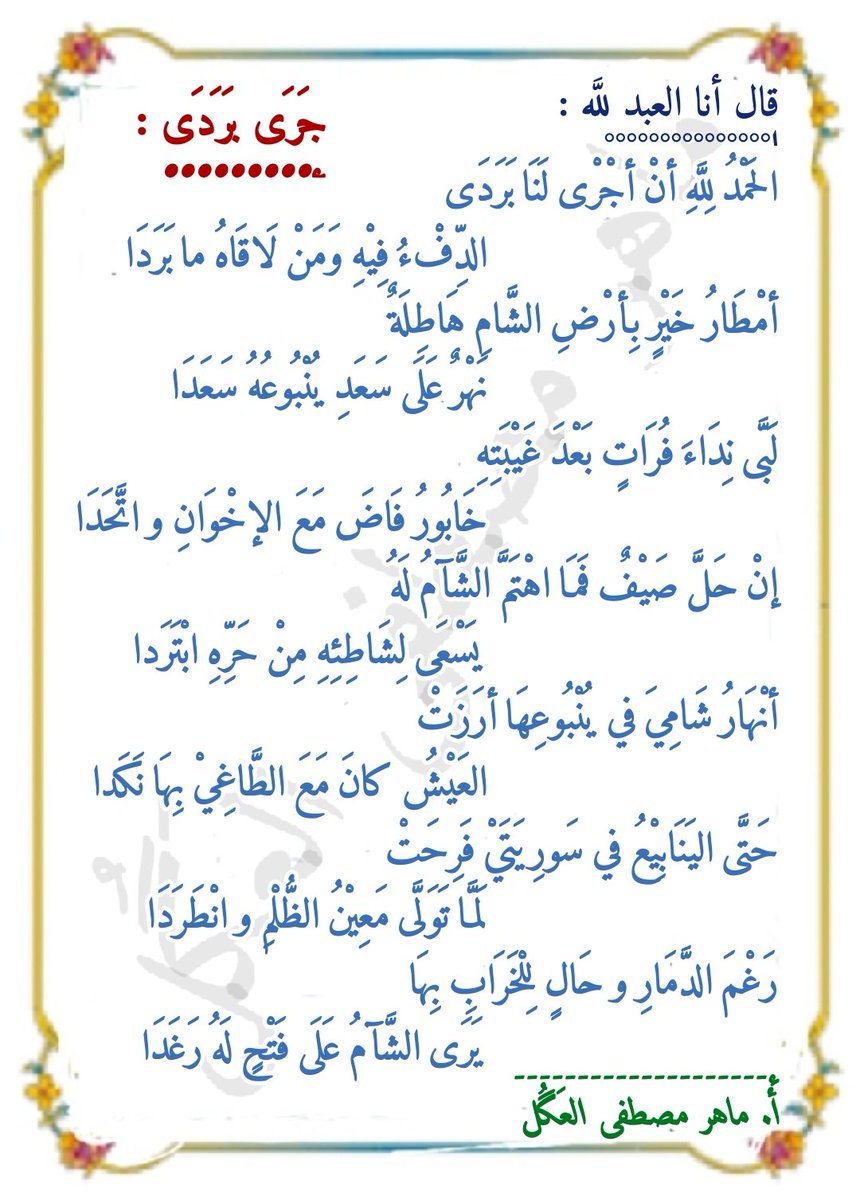 قال أنا العبد للَّه :
جَرَى بَرَدَى :
الحَمْدُ لِلَّهِ أنْ أجْرْى لَنَا بَرَدَى
الدِّفْءُ فِيْهِ وَمَنْ لَاقَاهُ ما بَرَدَا
أمْطَارُ خَيْرٍ بِأرْضِ الشَّامِ هَاطِلَةٌ
نَهْرٌ عَلَى سَعَدِ يُنْبُوعُهُ سَعَدَا
لَبَّى نِدَاءَ فُرَاتٍ بَعْدَ غَيْبَتِهِ
خَابُورُ فَاضَ مَعَ الإخْوَانِ و اتَّحَدَا
إنْ حَلَّ صَيْفٌ فَمَا اهْتَمَّ الشَّآمُ لَهُ
يَسْعَى لِشَاطِئِهِ مِنْ حَرِّهِ ابْتَرَدا
أنْهَارُ شَامِيَ في يُنْبُوعِهَا أرَزَتْ
العَيْشُ كانَ مَعَ الطَّاغِيْ بِهَا نَكَدا
حَتَّى اليَنَابِيْعُ في سَورِيَتَيْ فَرِحَتْ
لَمَّا تَوَلَّى مَعِيْنُ الظُّلْمِ و انْطَرَدَا
رَغْمَ الدَّمَارِ و حَالٍ لِلْخَرَابِ بِهَا
يَرَى الشَّآمُ عَلَى فَتْحٍ لَهُ رَغَدَا
أ. ماهر مصطفى العَكُل